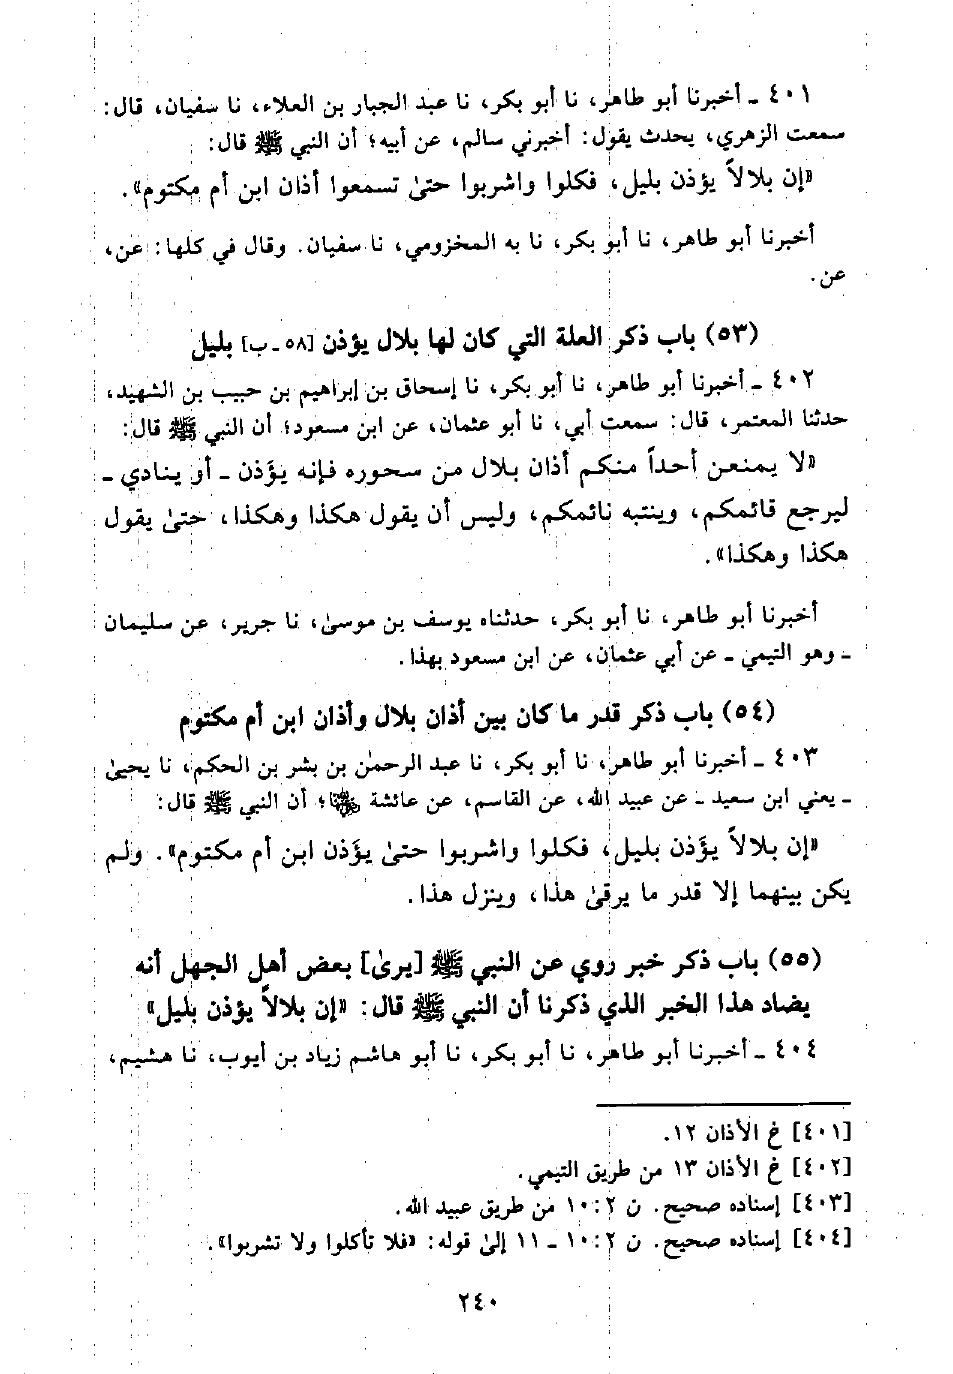 ٤٠١ ـ أخبرنا أبو طاهر، نا أبو بكر، نا عبد الجبار بن العلاء، نا سفيان، قال:
سمعت الزهري، يحدث يقول: أخبرني سالم، عن أبيه؛ أن النبي ﷺ قال:
«إن بلالاً يؤذن بليل، فكلوا واشربوا حتىٰ تسمعوا أذان ابن أم مكتوم».
أخبرنا أبو طاهر، نا أبو بكر، نا به المخزومي، نا سفيان. وقال في كلها: عن،
عن.
(٥٣) باب ذكر العلة التي كان لها بلال يؤذن [٥٨ ـ ب] بليل
٤٠٢ ـ أخبرنا أبو طاهر، نا أبو بكر، نا إسحاق بن إبراهيم بن حبيب بن الشهيد،
حدثنا المعتمر، قال: سمعت أبي، نا أبو عثمان، عن ابن مسعود؛ أن النبي ﷺ قال:
«لا يمنعن أحداً منكم أذان بلال من سحوره فإنه يؤذن ـ أو ينادي ـ
ليرجع قائمكم، وينتبه نائمكم، وليس أن يقول هكذا وهكذا، حتىٰ يقول
هكذا وهكذا».
أخبرنا أبو طاهر، نا أبو بكر، حدثناه يوسف بن موسىٰ، نا جرير، عن سليمان
ـ وهو التيمي ـ عن أبي عثمان، عن ابن مسعود بهذا.
(٥٤) باب ذكر قدر ما كان بين أذان بلال وأذان ابن أم مكتوم
٤٠٣ ـ أخبرنا أبو طاهر، نا أبو بكر، نا عبد الرحمٰن بن بشر بن الحكم، نا يحيىٰ
ـ يعني ابن سعيد ـ عن عبيد الله، عن القاسم، عن عائشة رضي الله عنها؛ أن النبي ﷺ قال:
«إن بلالاً يؤَذن بليل، فكلوا واشربوا حتىٰ يؤَذن ابن أم مكتوم». ولم
يكن بينهما إلا قدر ما يرقىٰ هذا، وينزل هذا.
(٥٥) باب ذكر خبر روي عن النبي ﷺ [يرىٰ] بعض أهل الجهل أنه
يضاد هذا الخبر الذي ذكرنا أن النبي ﷺ قال: «إن بلالاً يؤذن بليل»
٤٠٤ ـ أخبرنا أبو طاهر، نا أبو بكر، نا أبو هاشم زياد بن أيوب، نا هشيم،
[٤٠١] خ الأذان ١٢.
[٤٠٢] خ الأذان ١٣ من طريق التيمي.
[٤٠٣] إسناده صحيح. ن ٢: ١٠ من طريق عبيد الله.
[٤٠٤] إسناده صحيح. ن ٢: ١٠ ـ ١١ إلىٰ قوله: «فلا تأكلوا ولا تشربوا».
٢٤٠